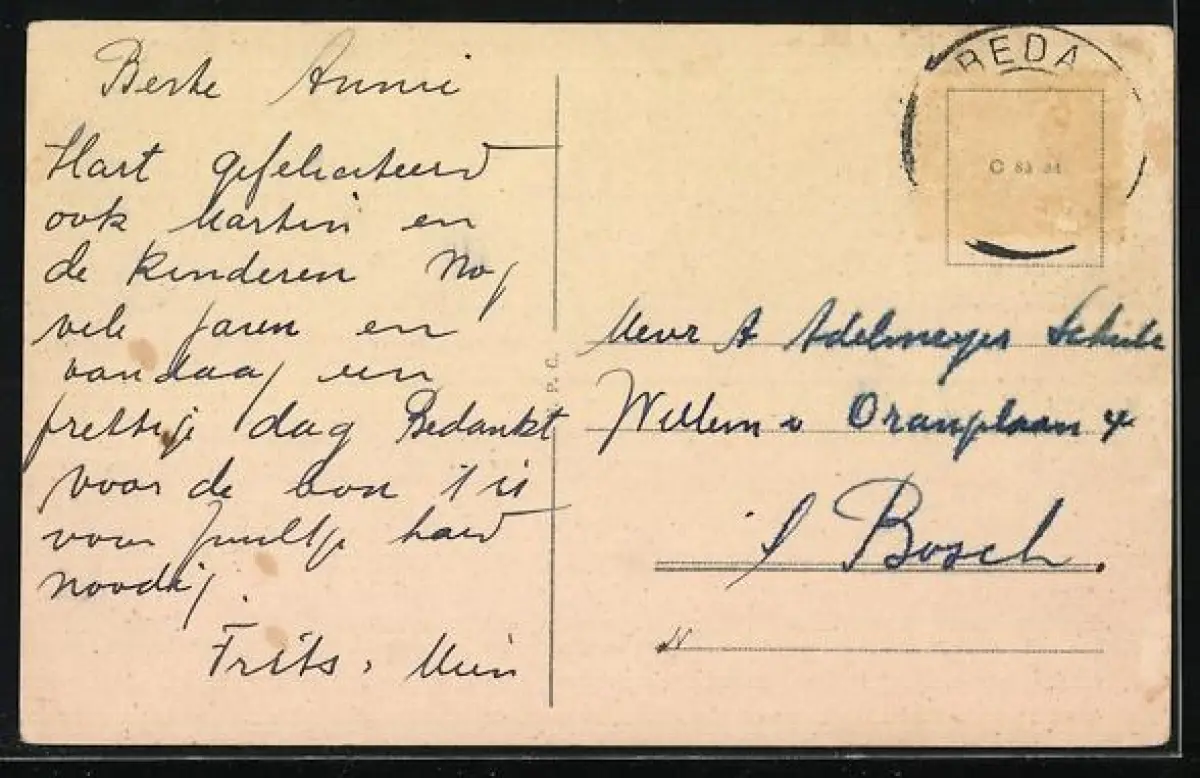 Beste Annie
Hart gefeliciteerd
ook Martin en
de kinderen Nog
vele jaren en
vandaag een
prettige dag Bedankt
voor de bon 't is
voor hard
noodig.
Frits, Mien
BREDA
C 83 34
P. C.
Mevr A Adelmeyer
Willem v Oranjelaan 4
's Bosch.
N